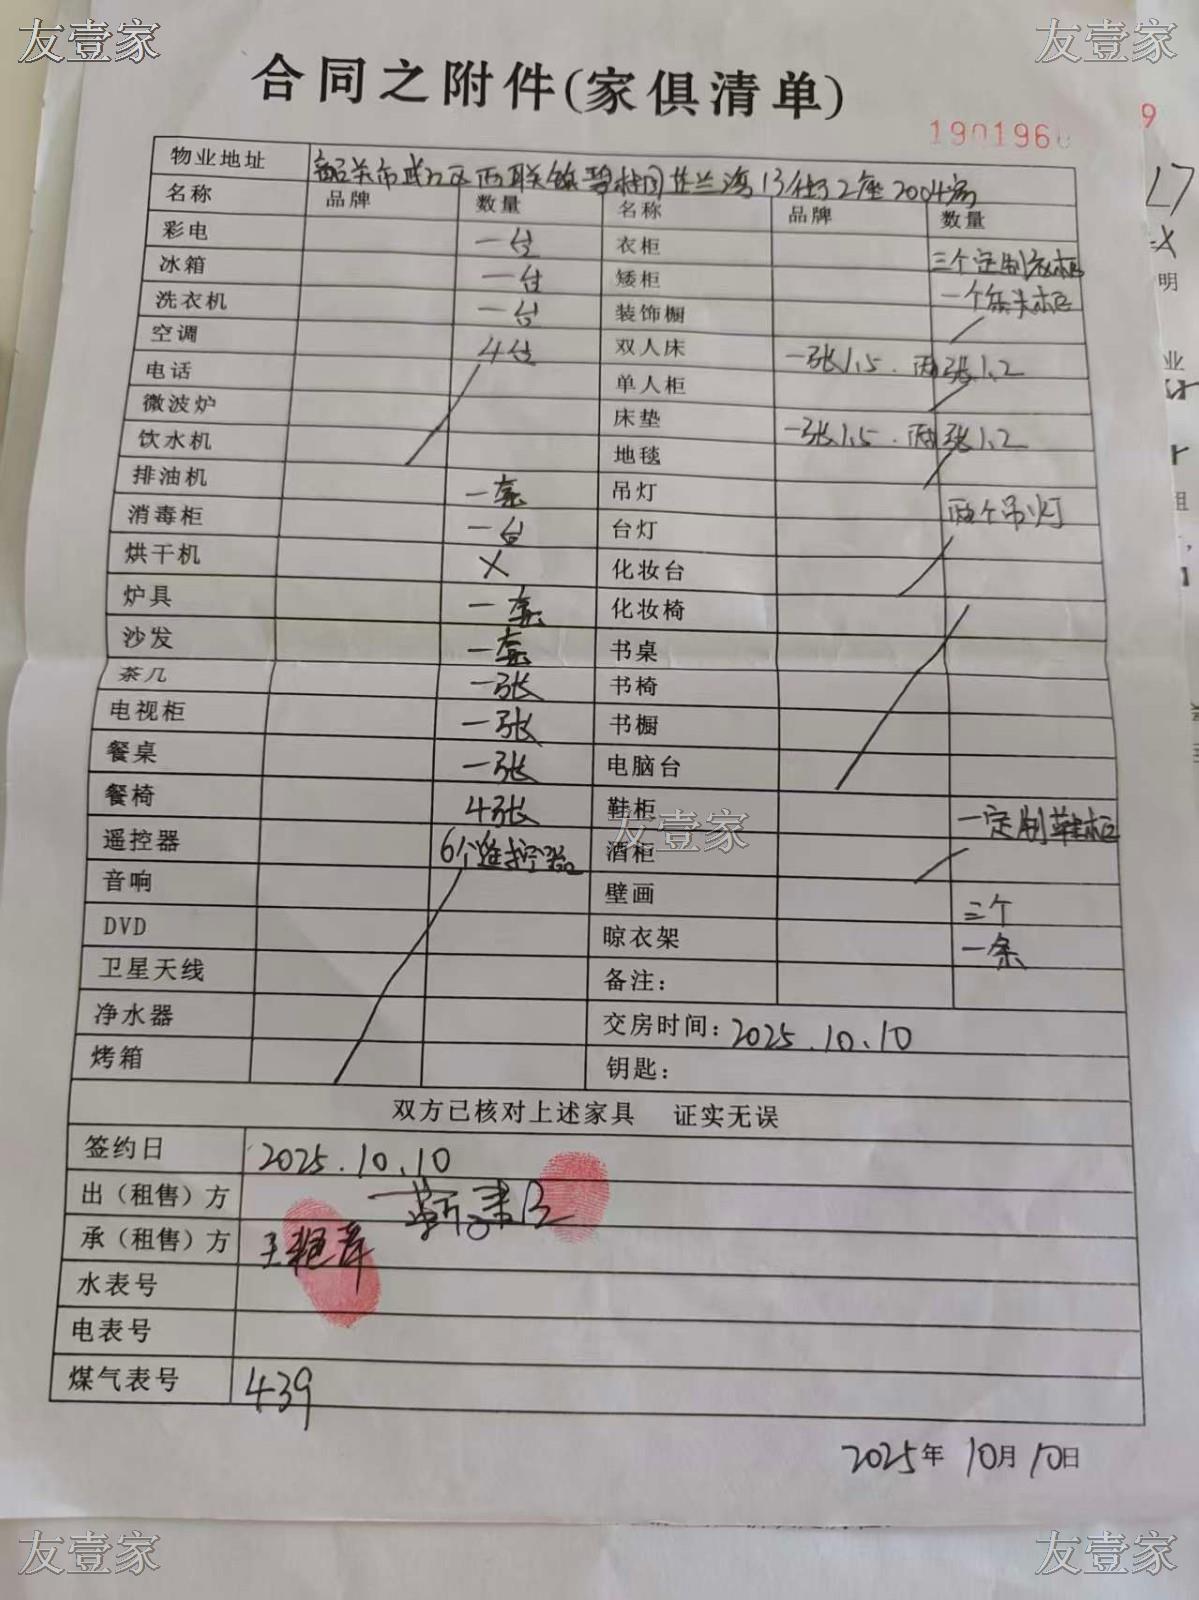 友壹家 友壹家
合同之附件(家俱清单)
190196
9
物业地址 韶关市武江区西联镇碧桂园芷兰湾13街2座2004房
名称 品牌 数量 名称 品牌 数量
彩电 一台 衣柜 三个定制衣柜
冰箱 一台 矮柜 一个床头柜
洗衣机 一台 装饰橱
空调 4台 双人床 一张1.5.两张1.2
电话 单人柜
微波炉 床垫 一张1.5.两张1.2
饮水机 地毯
排油机 一套 吊灯 两个吊灯
消毒柜 一台 台灯
烘干机 X 化妆台
炉具 一套 化妆椅
沙发 一套 书桌
茶几 一张 书椅
电视柜 一张 书橱
餐桌 一张 电脑台
餐椅 4张 鞋柜 一定制鞋柜
友壹家
遥控器 6个遥控器 酒柜
音响 壁画 三个
DVD 晾衣架 一条
卫星天线 备注：
净水器 交房时间：2025.10.10
烤箱 钥匙：
双方已核对上述家具 证实无误
签约日 2025.10.10
出（租售）方
承（租售）方
水表号
电表号
煤气表号 439
2025年 10月10日
友壹家 友壹家